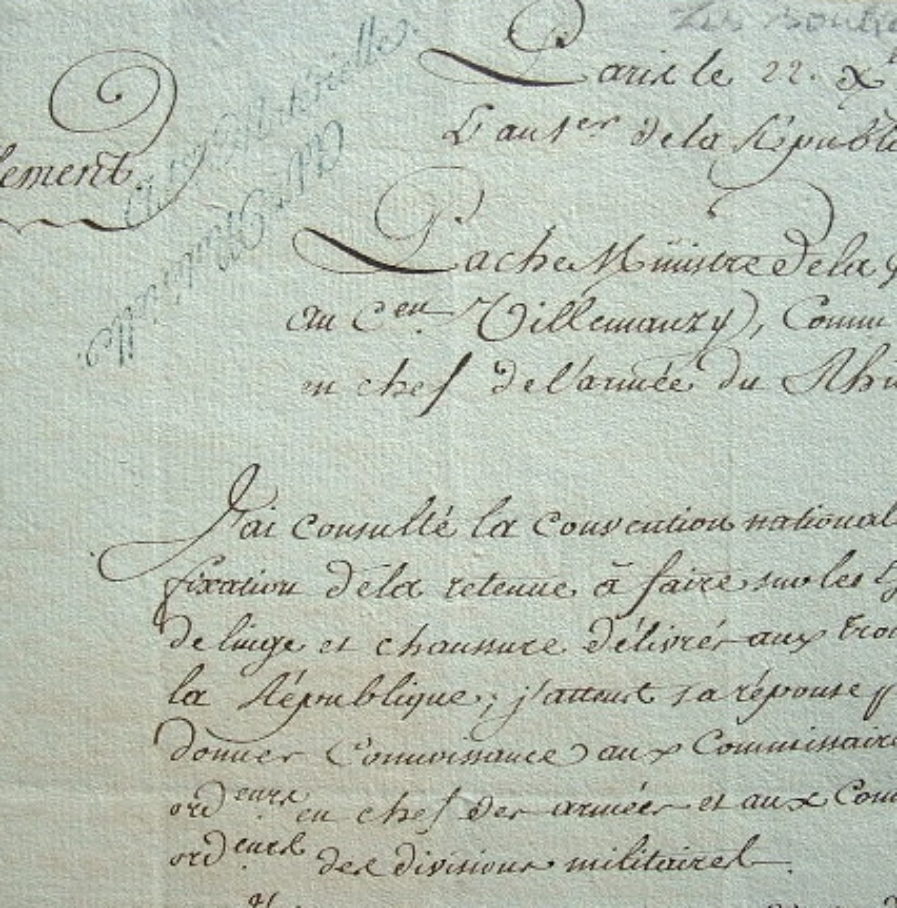 Paris le 22. X
L'an 1er de la Républi
lement.
Pache Ministre de la
au Cen Villemanzy, Comm
en chef de l'armée du Rhi
J'ai consulté la Convention national
fixation de la retenue à faire sur les
de linge et chaussure délivrés aux trou
la République; j'attens sa réponse p
donner Connoissance aux Commissaire
ordeurs en chef des armées et aux Com
ordeurs des divisions militaires.